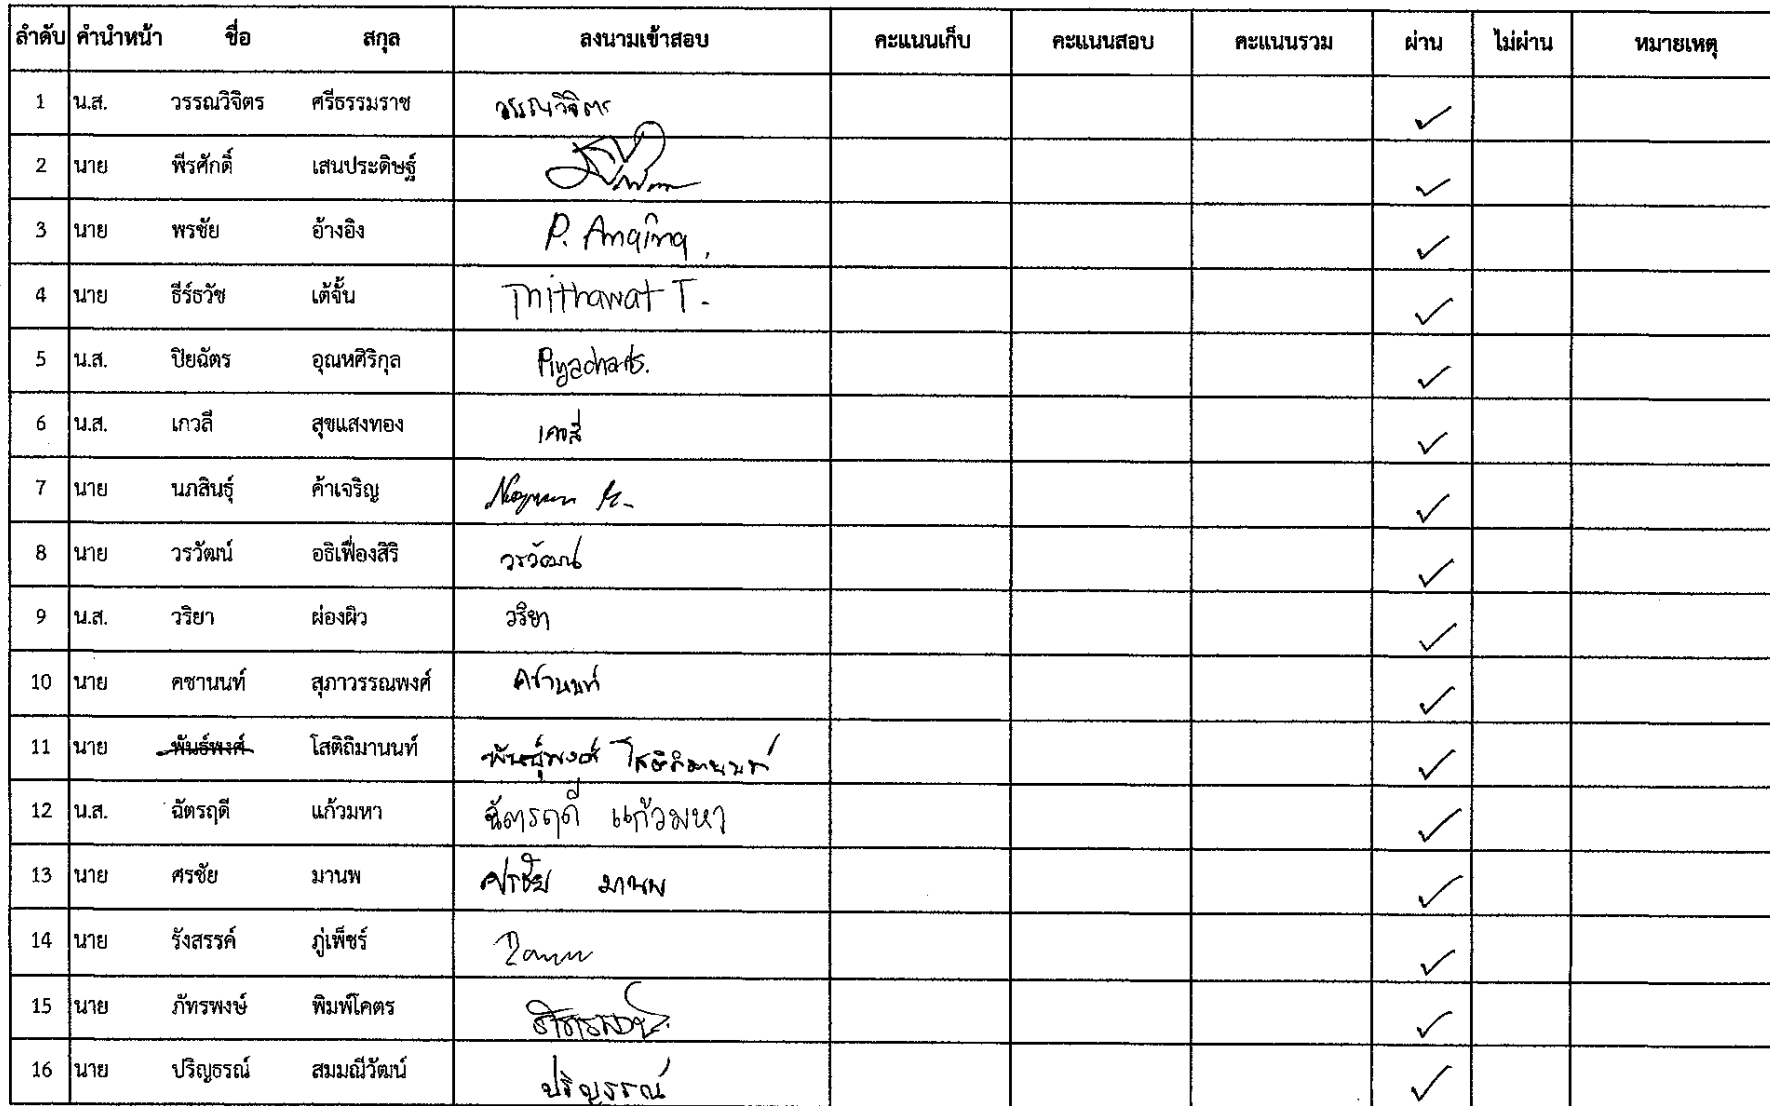 ลำดับ คำนำหน้า ชื่อ สกุล ลงนามเข้าสอบ คะแนนเก็บ คะแนนสอบ คะแนนรวม ผ่าน ไม่ผ่าน หมายเหตุ
1 น.ส. วรรณวิจิตร ศรีธรรมราช วรรณวิจิตร ✓
2 นาย พีรศักดิ์ เสนประดิษฐ์ ✓
3 นาย พรชัย อ้างอิง P. Anqing ✓
4 นาย ธีร์ธวัช เต้จั้น Thithawat T. ✓
5 น.ส. ปิยฉัตร อุณหศิริกุล Piyachats. ✓
6 น.ส. เกวลี สุขแสงทอง เกวลี ✓
7 นาย นภสินธุ์ ค้าเจริญ ✓
8 นาย วรวัฒน์ อธิเฟื่องสิริ วรวัฒน์ ✓
9 น.ส. วริยา ผ่องผิว วริยา ✓
10 นาย คชานนท์ สุภาวรรณพงศ์ คชานนท์ ✓
11 นาย พันธ์พงศ์ โสติถิมานนท์ พันธุ์พงศ์ โสติถิมานนท์ ✓
12 น.ส. ฉัตรฤดี แก้วมหา ฉัตรฤดี แก้วมหา ✓
13 นาย ศรชัย มานพ ศรชัย มานพ ✓
14 นาย รังสรรค์ ภู่เพ็ชร์ ✓
15 นาย ภัทรพงษ์ พิมพ์โคตร ภัทรพงษ์ ✓
16 นาย ปริญธรณ์ สมมณีวัฒน์ ปริญธรณ์ ✓